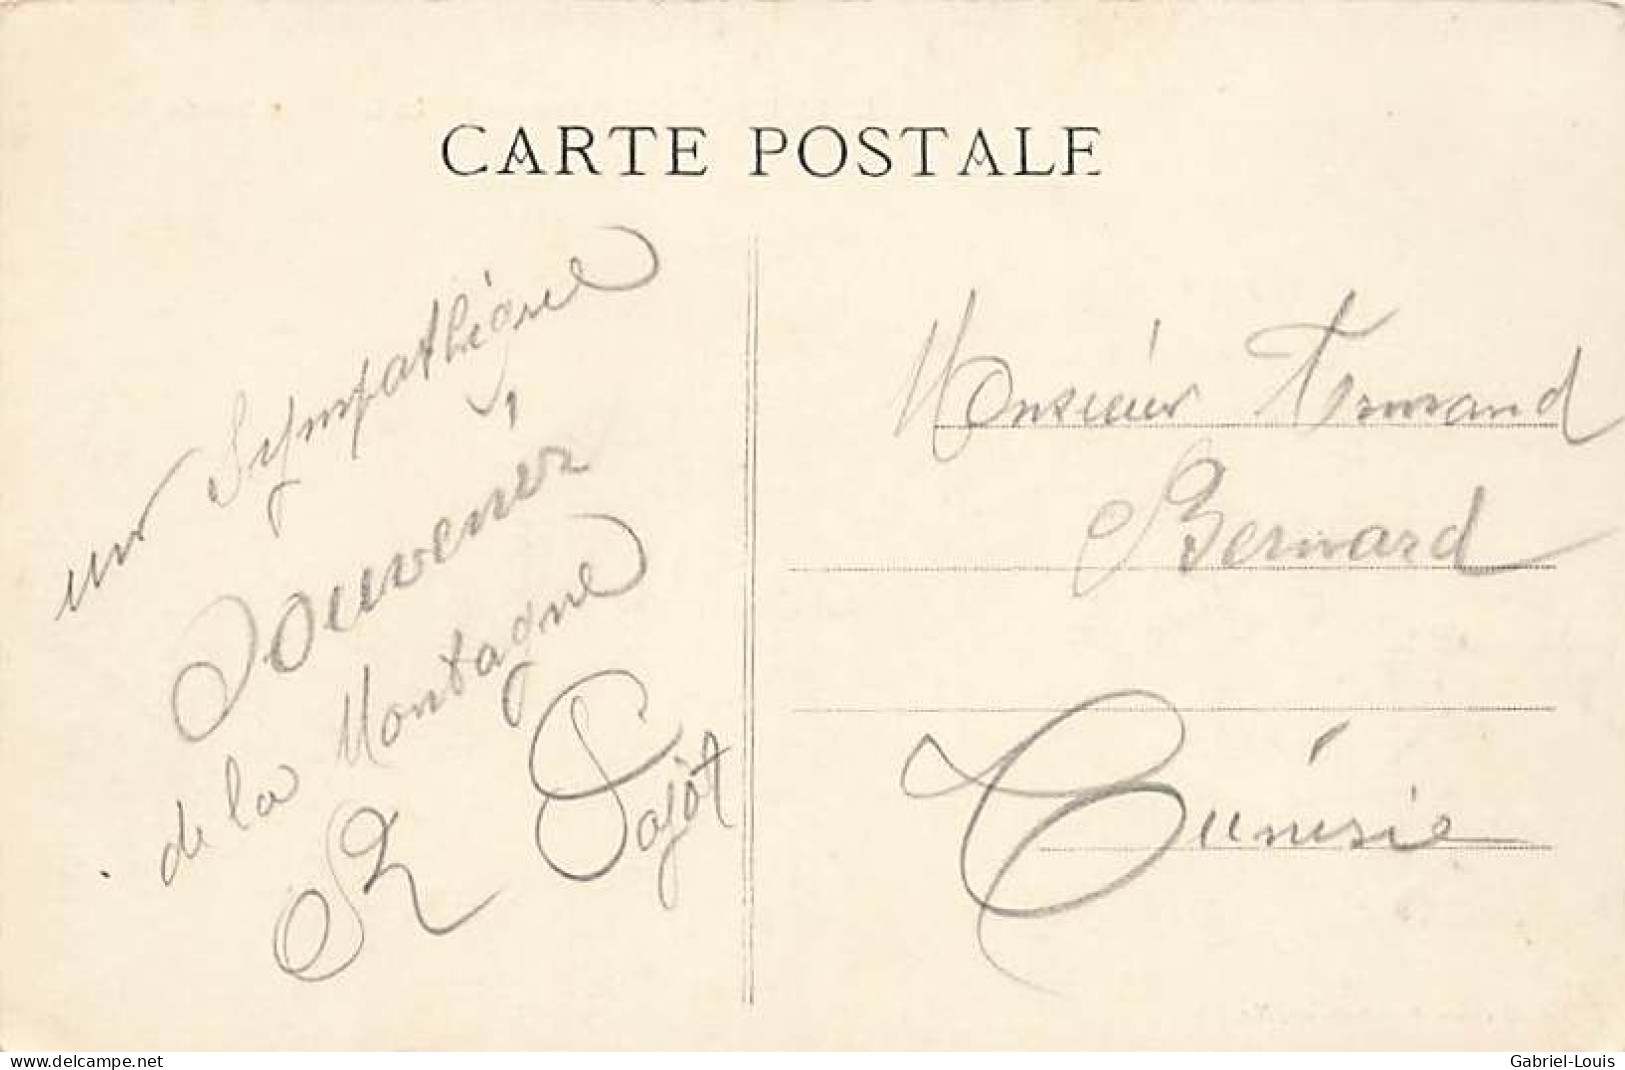 CARTE POSTALE
un Sympathique
Souvenir
de la Montagne
Monsieur Armand
Bernard
Tunisie
www.delcampe.net
Gabriel-Louis